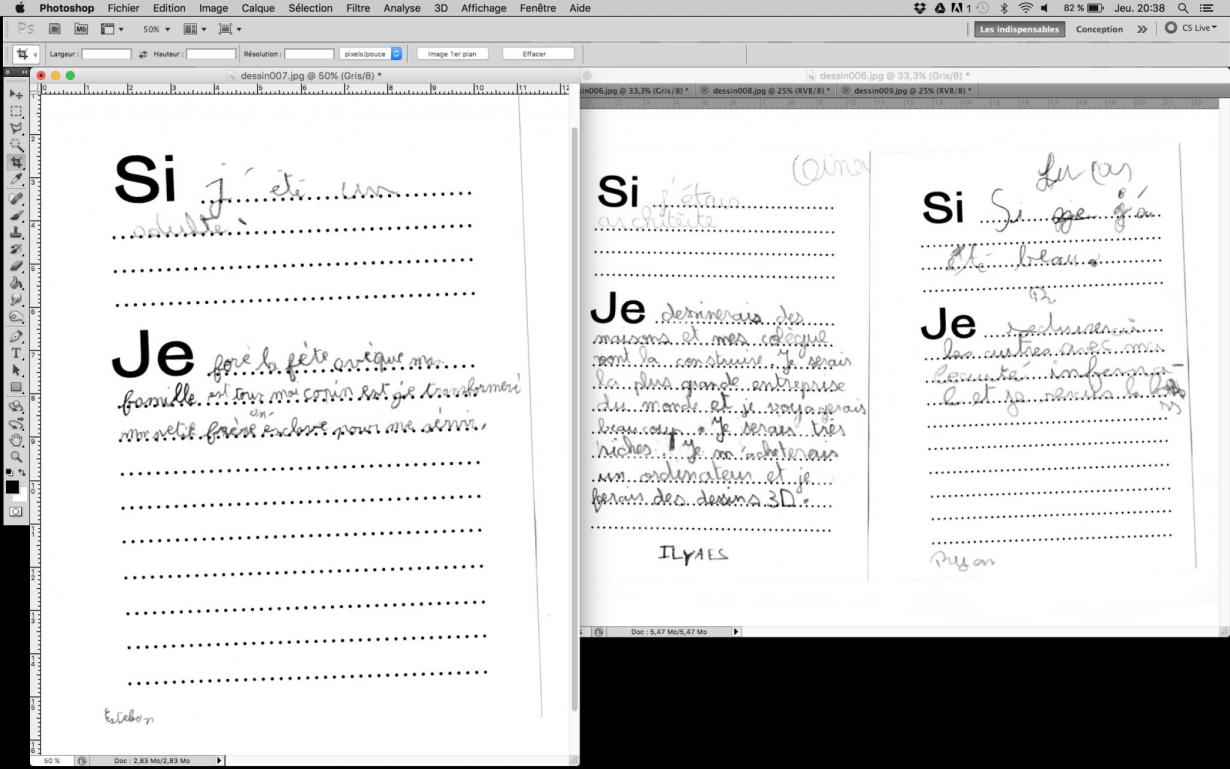 Photoshop Fichier Edition Image Calque Sélection Filtre Analyse 3D Affichage Fenêtre Aide
1 82 % Jeu. 20:38
Ps Br Mb 50% Les indispensables Conception CS Live
Largeur : Hauteur : Résolution : pixels/pouce Image 1er plan Effacer
dessin007.jpg @ 50% (Gris/8) *
0 1 2 3 4 5 6 7 8 9 10 11 12
Si j'été un
adulte
Je foré la fète avèque ma
famille est tous mai cosin est je transformeré
mon petit frère en esclave pour me servir.
Esteban
50 % Doc : 2,83 Mo/2,83 Mo
dessin006.jpg @ 33,3% (Gris/8) *
sin006.jpg @ 33,3% (Gris/8) * dessin008.jpg @ 25% (RVB/8) * dessin009.jpg @ 25% (RVB/8) *
Si j'étais
architècte
Je dessinerais des
maisons et mes colègue
vont la construire. Je serais
la plus grande entreprise
du monde et je voyagerais
beaucoup. Je serais très
riches. Je m'achèterais
un ordinateur et je
ferais des dessins 3D.
ILYAES
Lucas
Si Si j'a
été beau.
Je
les autres avec ma
beauté
l et je serais le
Doc : 5,47 Mo/5,47 Mo